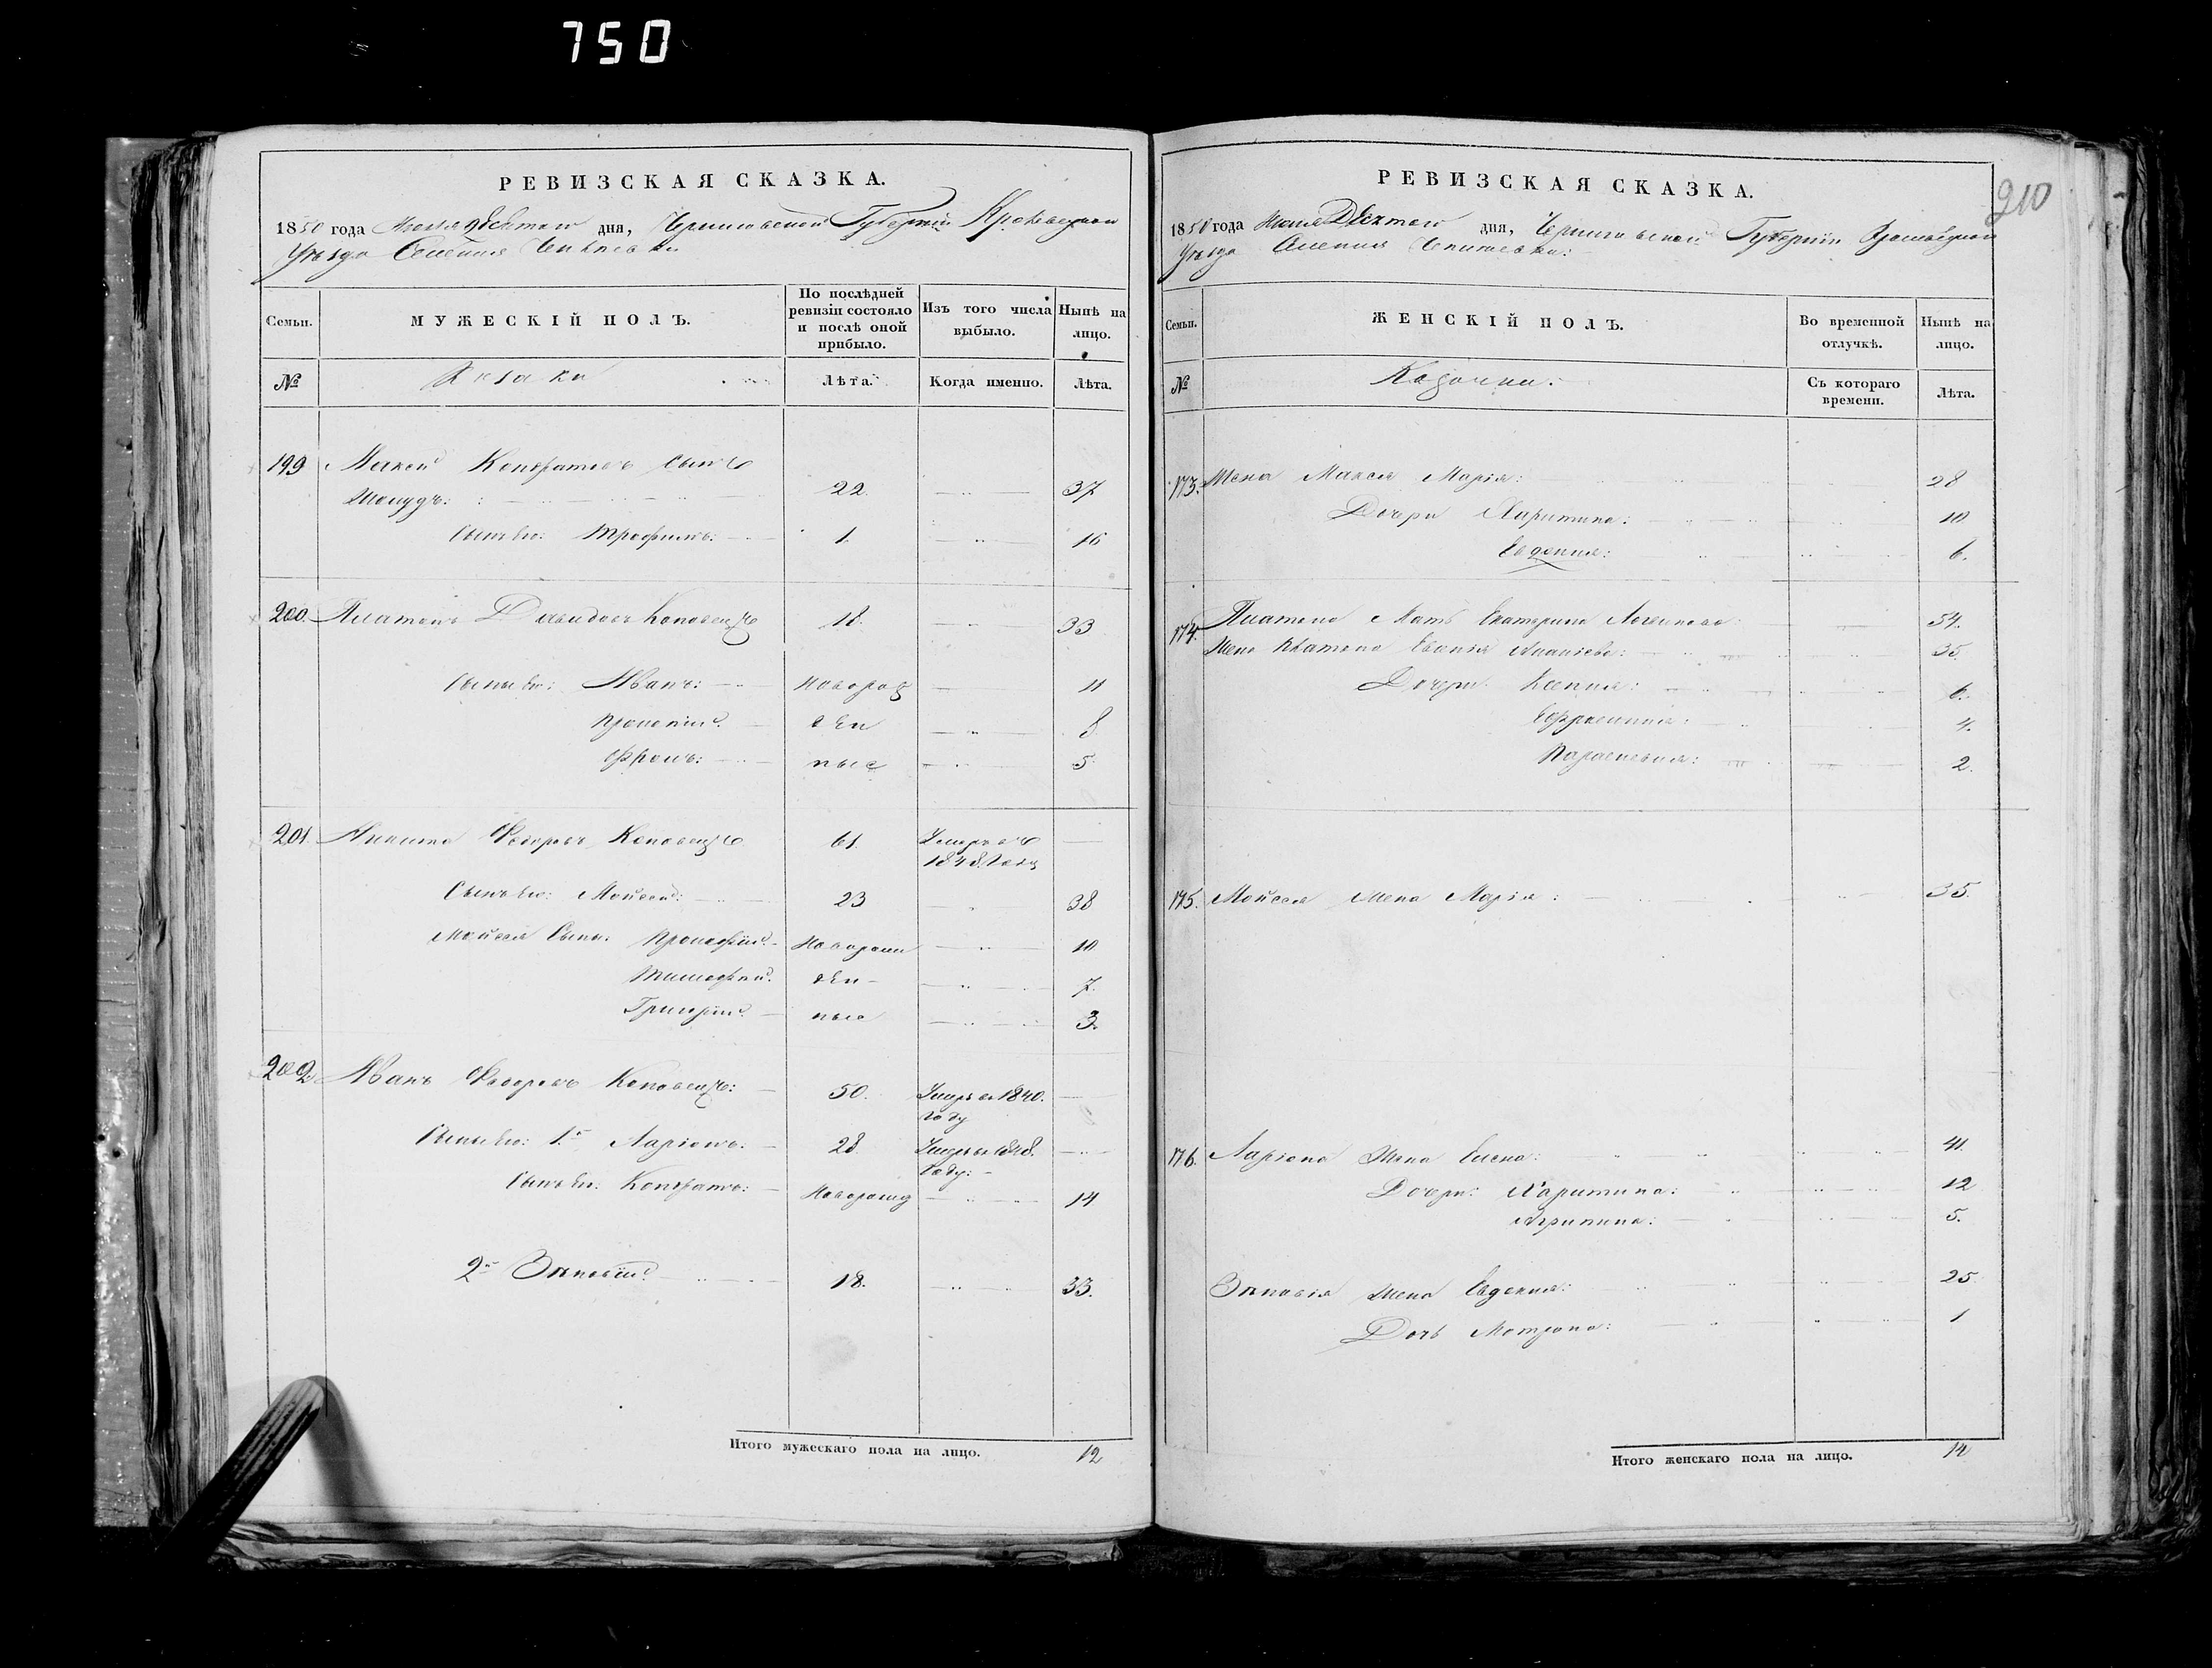 750
РЕВИЗСКАЯ СКАЗКА.
1850 года дня, Черниговской Губерніи Кролевецкаго
Уѣзда Селенія
Семьи.
МУЖЕСКІЙ ПОЛЪ.
По послѣдней ревизіи состояло и послѣ оной прибыло.
Изъ того числа выбыло.
Нынѣ на лицо.
№
Козаки
Лѣта.
Когда именно.
Лѣта.
199 Моисей Кондратовъ сынъ
22. 37
Сынъ его: Трофимъ: 1. 16
200. Платонъ Давидовъ Коновецъ 18. 33
Сыны его: Иванъ: новорож 11
Прокопій. ден 8
ные 5
201. Никита Федоровъ Коновецъ 61. Умеръ въ
1848. году
Сынъ его: Мойсей: 23 38
Мойсея сыны: Прокофій. Новорож 10
Тимофей. ден 7.
Григорій. ные 3.
202 Иванъ Федоровъ Коновецъ: 50. Умеръ въ 1840.
году
Сыны его: 1й Ларіонъ: 28. Умеръ въ 1848.
году:
Сынъ его: Кондратъ: Новорожд 14
2й Зѣновій 18. 33.
Итого мужескаго пола на лицо. 12
210
РЕВИЗСКАЯ СКАЗКА.
1850 года дня, Черниговской Губерніи Кролевецкаго
Уѣзда Селенія
Семьи.
ЖЕНСКІЙ ПОЛЪ.
Во временной отлучкѣ.
Нынѣ на лицо.
№
Козачки:
Съ котораго времени.
Лѣта.
173. Жена Марія: 28
Дочери Харитина: 10
Евдокия: 6.
174. Платона Мать Екатерина Логвинова: 54.
Жена Платона Ананіева: 35
Дочери Ксенія: 6.
Ефросинія: 4.
Параскевия: 2.
175. Мойсея жена Марія: 35.
176. Ларіона жена Елена: 41.
Дочери: Харитина: 12
Агрипина: 5.
Зѣновія жена Евдокия: 25
Дочь Мотрона: 1
Итого женскаго пола на лицо. 14